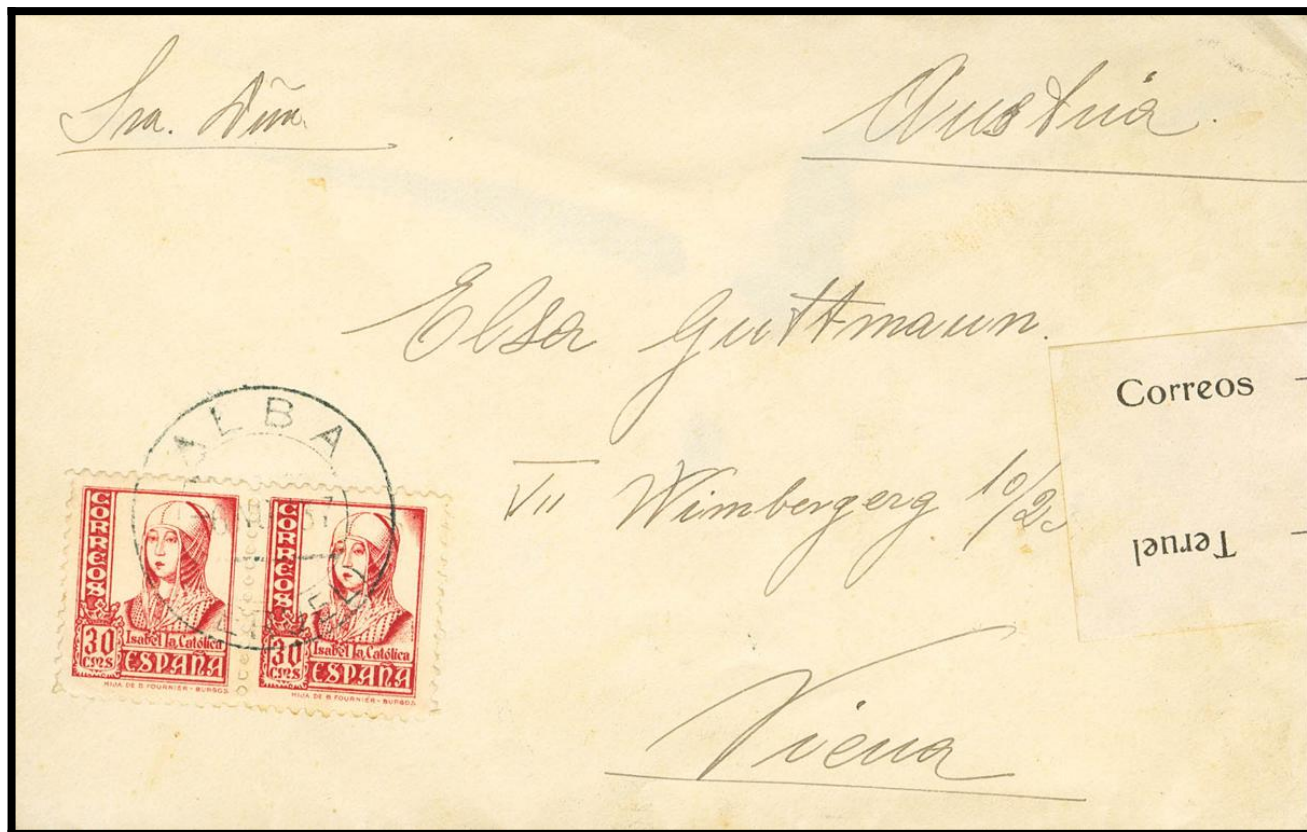 Sra. Dña.
Austria.
Elsa Guttmann.
VII Wimbergerg. 10/2
Viena
Correos
Teruel
ALBA
CORREOS
30
CMS
Isabel la Católica
ESPAÑA
HIJA DE B. FOURNIER - BURGOS
CORREOS
30
CMS
Isabel la Católica
ESPAÑA
HIJA DE B. FOURNIER - BURGOS